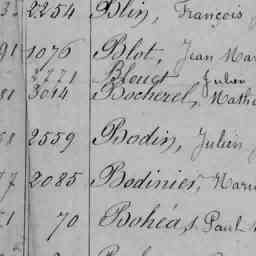 2254 Blin, François
1076 Blot, Jean Mar
2221 Blouet Julien
81 3014 Bocherel, Mathu
2559 Bodin, Julien
2085 Bodinier, Marie
70 Bohéas Paul